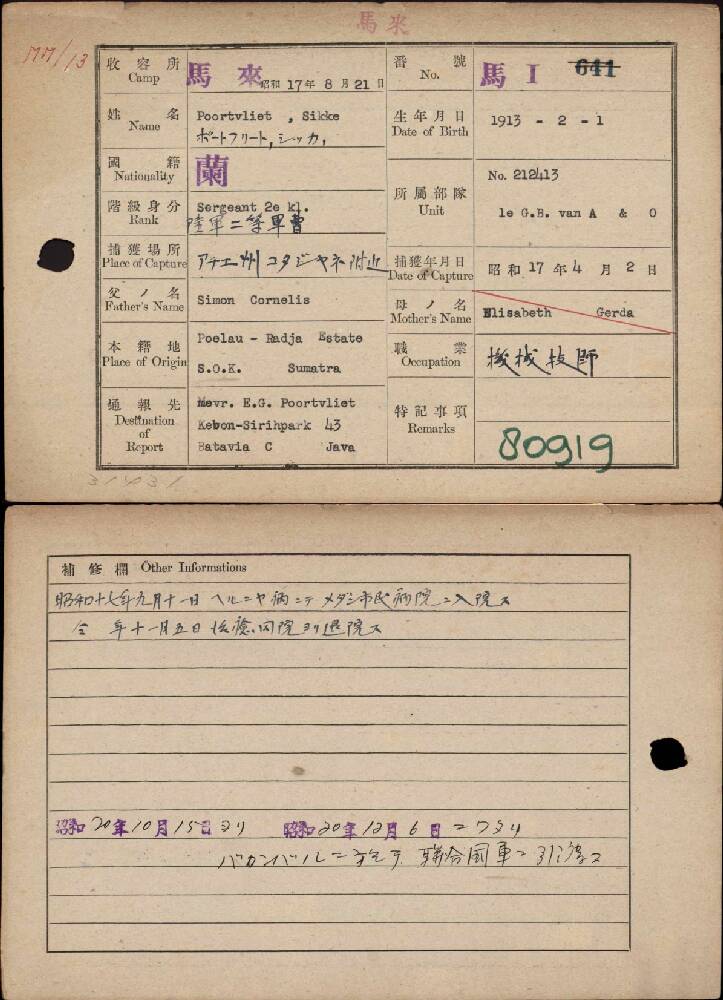 馬来
MM/13
收容所 Camp 馬來 昭和17年8月21日
番號 No. 馬 I 641
姓名 Name Poortvliet , Sikke
ポートフリート,シッカ,
生年月日 Date of Birth 1913 - 2 - 1
國籍 Nationality 蘭
所屬部隊 Unit No. 212413
1e G.B. van A & O
階級身分 Rank Sergeant 2e kl.
陸軍二等軍曹
捕獲場所 Place of Capture アチエ州コタジヤネ附近
捕獲年月日 Date of Capture 昭和17年4月2日
父ノ名 Father's Name Simon Cornelis
母ノ名 Mother's Name Elisabeth Gerda
本籍地 Place of Origin Poelau - Radja Estate
S.O.K. Sumatra
職業 Occupation 機械技師
通報先 Destination of Report Mevr. E.G. Poortvliet
Kebon-Sirihpark 43
Batavia C Java
特記事項 Remarks
80919
31431
補修欄 Other Informations
昭和十七年九月十一日ヘルニヤ病ニテメダン市民病院ニ入院ス
仝年十一月五日治癒同院ヨリ退院ス
昭和20年10月15日ヨリ 昭和20年12月6日ニワタリ
パカンバルニ於テ 聯合國軍ニ引渡ス